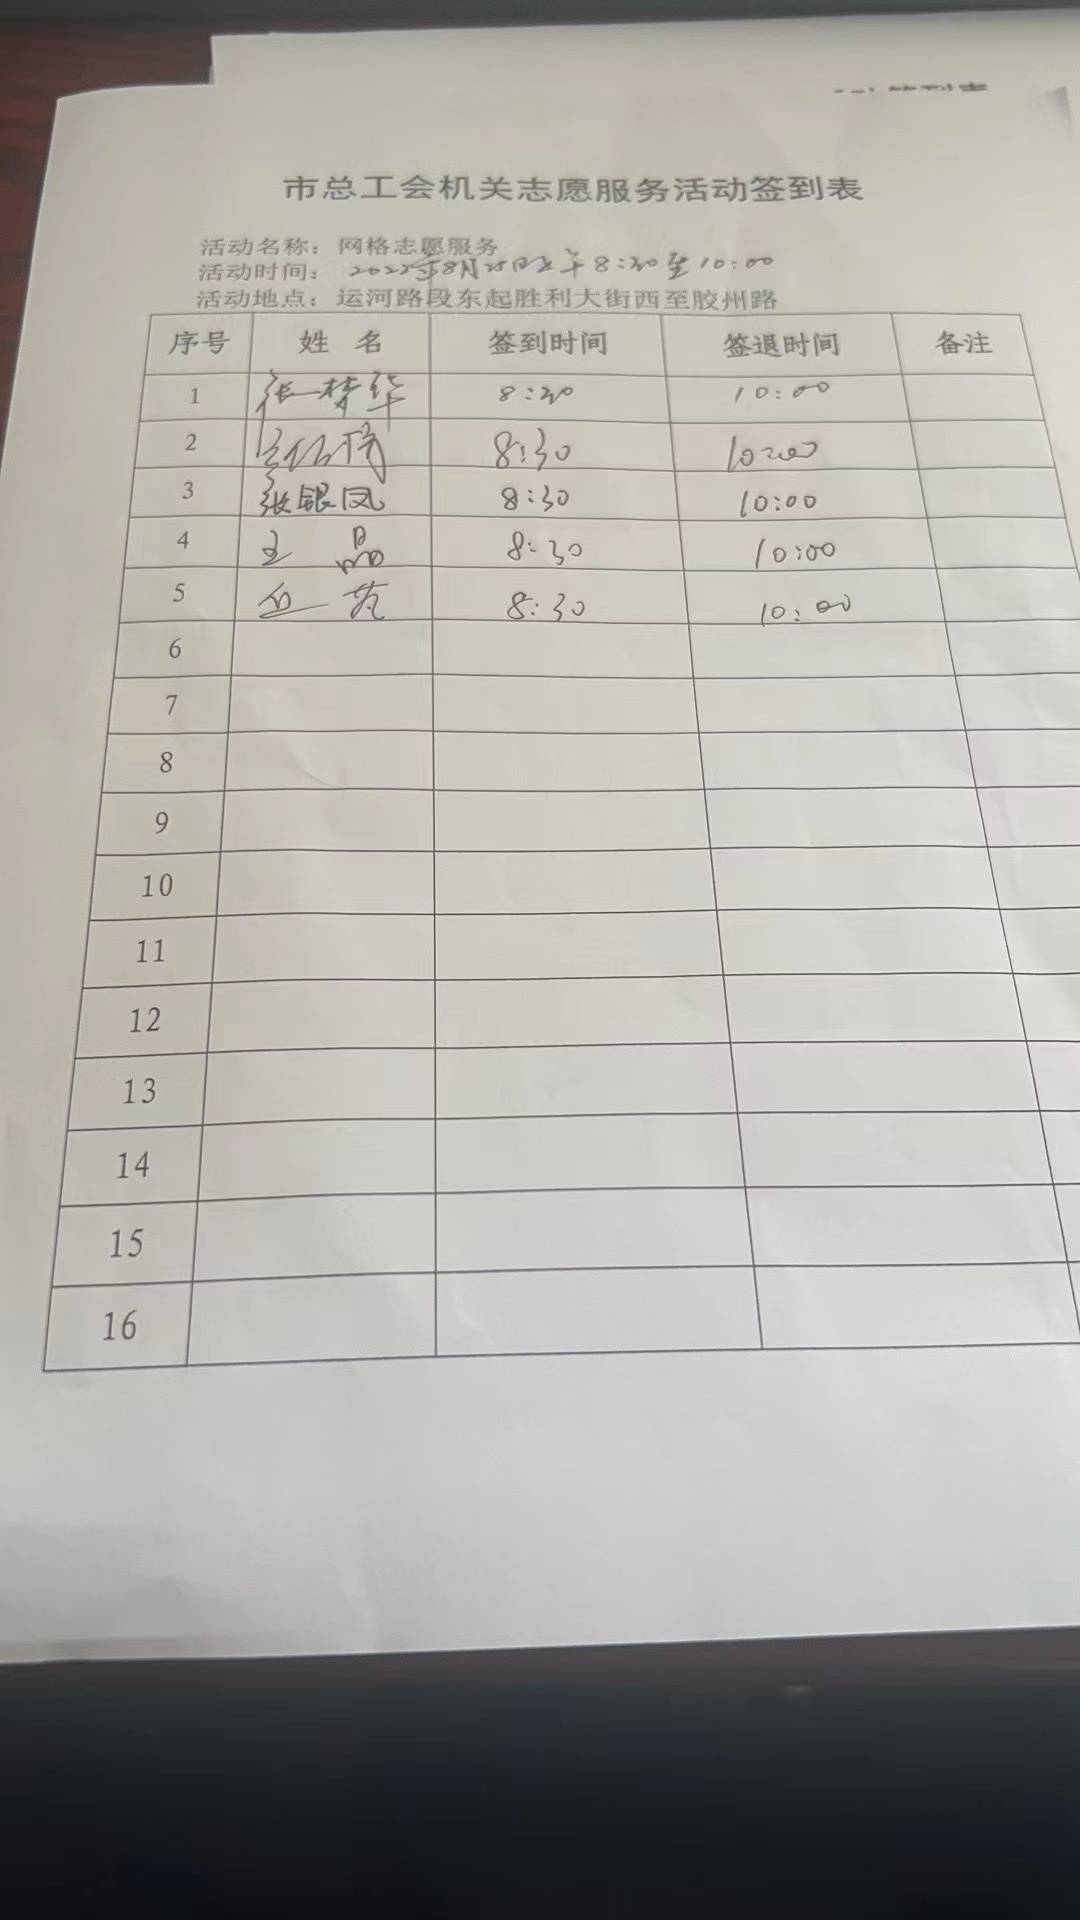 签到表
市总工会机关志愿服务活动签到表
活动名称：网格志愿服务
活动时间：2022年8月25日上午8:30至10:00
活动地点：运河路段东起胜利大街西至胶州路
序号 姓 名 签到时间 签退时间 备注
1 张梦华 8:30 10:00
2 8:30 10:00
3 张银凤 8:30 10:00
4 王 晶 8:30 10:00
5 8:30 10:00
6
7
8
9
10
11
12
13
14
15
16